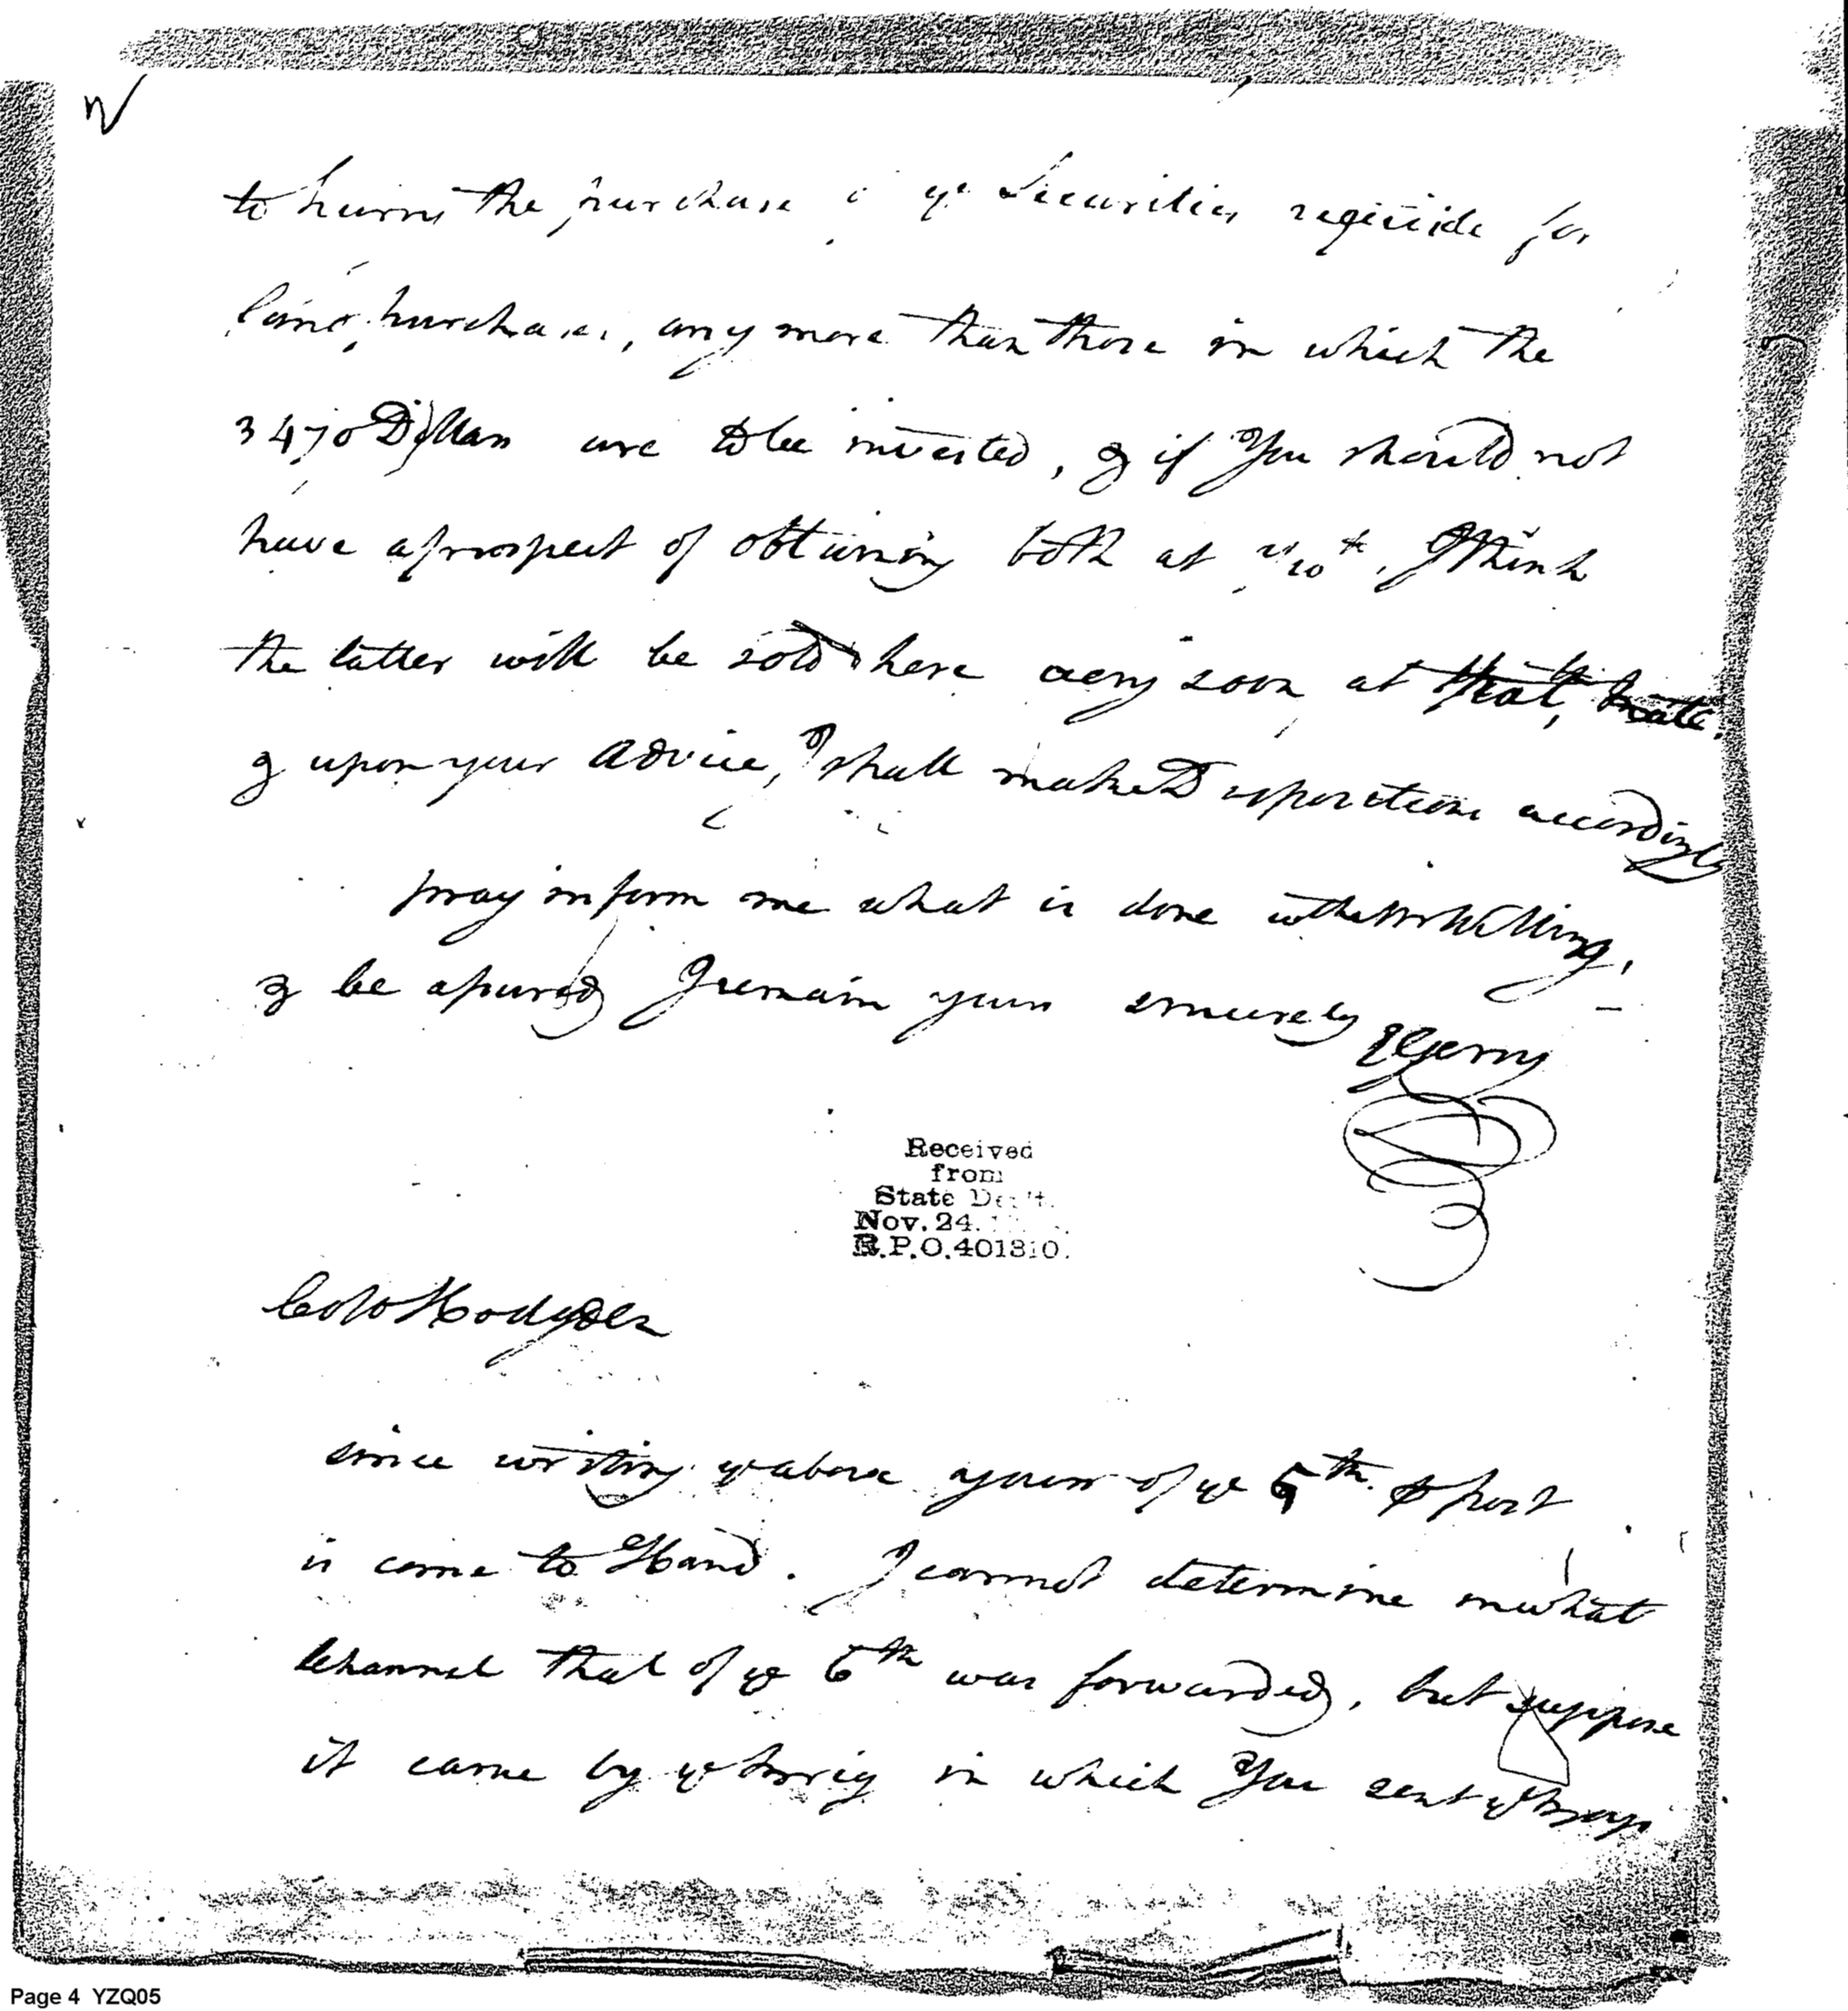 to hurry the purchase of ye Securities requisite for
land purchases, any more than those in which the
3470 Dollars are to be invested, & if You should not
have a prospect of obtaining both at /10th, I think
the latter will be sold here very soon at that rate,
& upon your Advice, I shall make Dispositions accordingly
pray inform me what is done with Mr Whiting,
& be assured I remain yours sincerely
EGerry
Received
from
State Dept.
Nov. 24.
R.P.O. 401310.
Colo Hodgdon
since writing ye above yours of ye 5th ⅌ post
is come to Hand. I cannot determine in what
Channel that of ye 6th was forwarded, but suppose
it came by ye brig in which You sent ye
Page 4 YZQ05